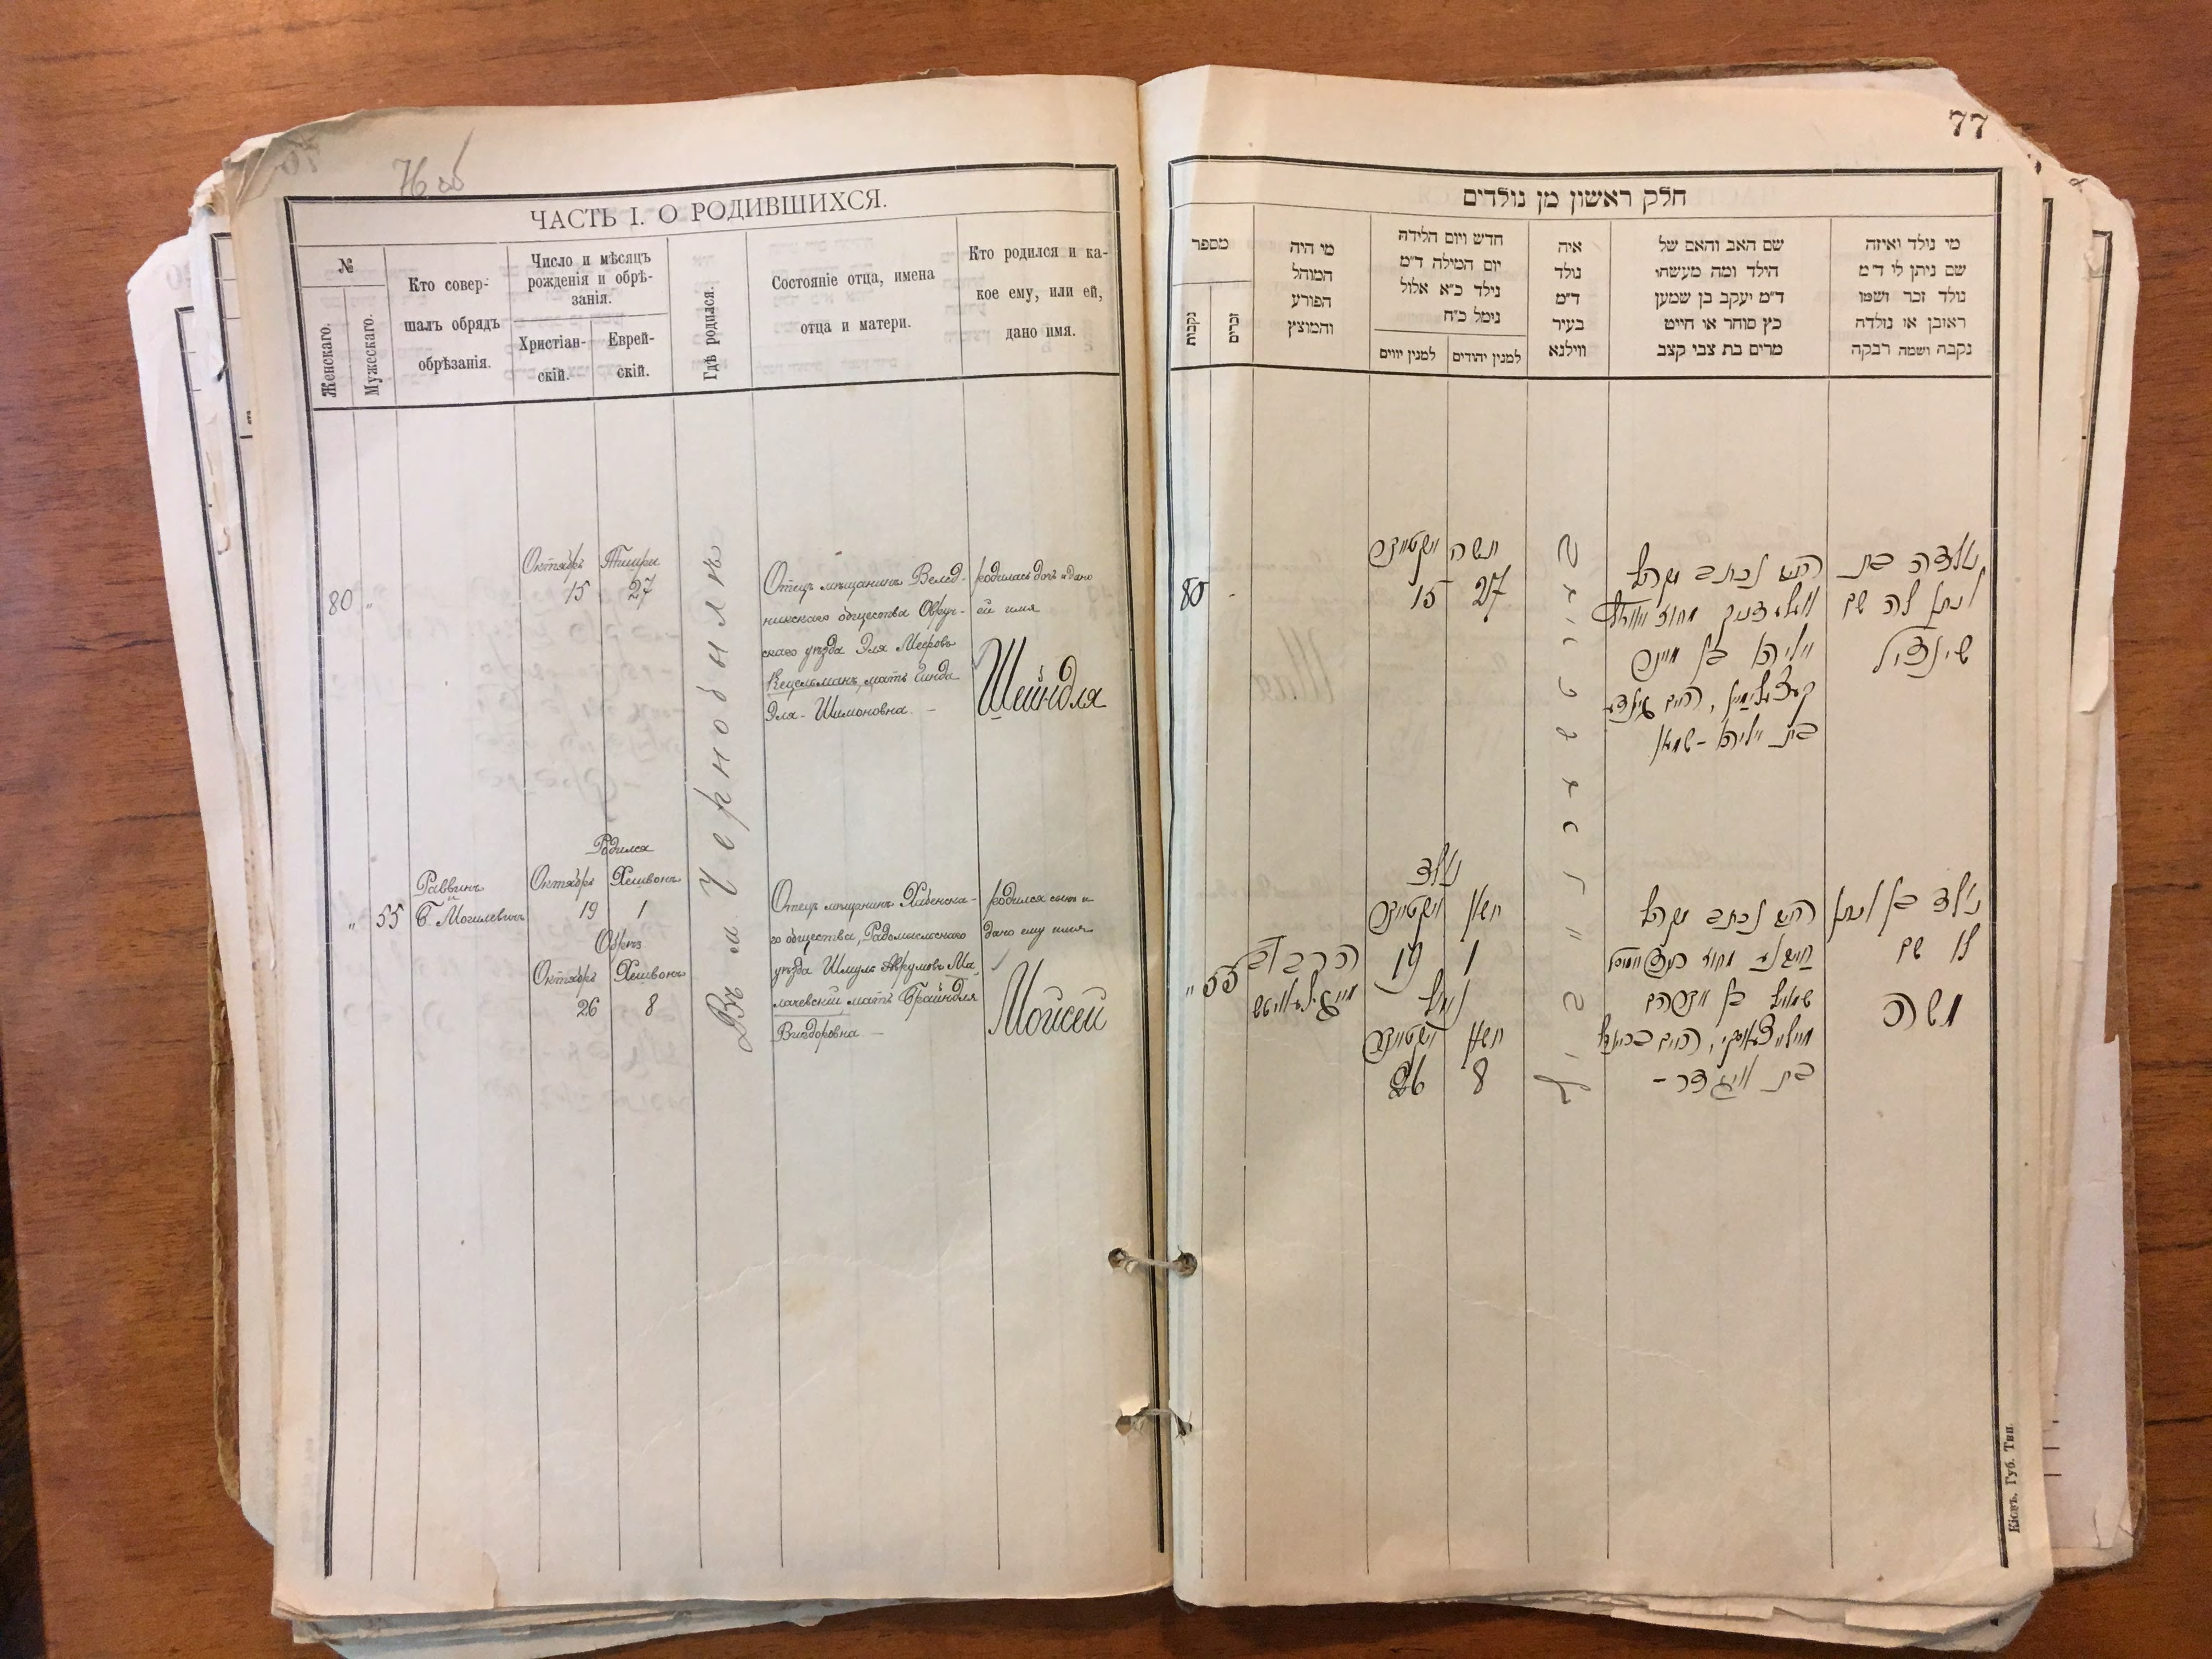 76 об
ЧАСТЬ I. О РОДИВШИХСЯ.
№
Женскаго.
Мужескаго.
Кто совер-
шалъ обрядъ
обрѣзанія.
Число и мѣсяцъ
рожденія и обрѣ-
занія.
Христіан-
скій.
Еврей-
скій.
Гдѣ родился.
Состояніе отца, имена
отца и матери.
Кто родился и ка-
кое ему, или ей,
дано имя.
80 "
Октябрь Тишри
15 27
Въ м Чернобылѣ
Отецъ мѣщанинъ Велед-
никскаго общества Овруч-
скаго уѣзда Эля Мееровъ
Кецельманъ, мать Гинда
Эля-Шимоновна. —
родилась дочь и дано
ей имя
Шейндля
" 55
Раввинъ
и
Б. Могилевичъ
Родился
Октябрь Хешвонъ
19 1
Обрѣз
Октябрь Хешвонъ
26 8
Отецъ мѣщанинъ Хабенска-
го общества, Радомысльскаго
уѣзда Шмуль Аврумовъ Ма-
лачевский мать Брайндля
Вигдоровна —
родился сынъ и
дано ему имя
Мойсей
77
חלק ראשון מן נולדים
מספר
נקבות
זכרים
מי היה
המוהל
הפורע
והמוצץ
חדש ויום הלידה
יום המילה ד"מ
נילד כ"א אלול
נימל כ"ח
למנין יווים
למנין יהודים
איה
נולד
ד"מ
בעיר
ווילנא
שם האב והאם של
הילד ומה מעשתו
ד"מ יעקב בן שמען
כץ סוחר או חייט
מרים בת צבי קצב
מי נולד ואיזה
שם ניתן לי ד"מ
נולד זכר ושמו
ראובן או נולדה
נקבה ושמה רבקה
80 -
תשרי
15 27
האב נכתב בקהל
בת
נולדה בת
ונתן לה שם
שיינדיל
" 55
הרב וב
נולד
19 1
נימול
26 8
האב נכתב בקהל
שמואל בן אברהם
בת אביגדר -
נולד בן ונתן
לו שם
משה
Кіевъ, Губ. Тип.